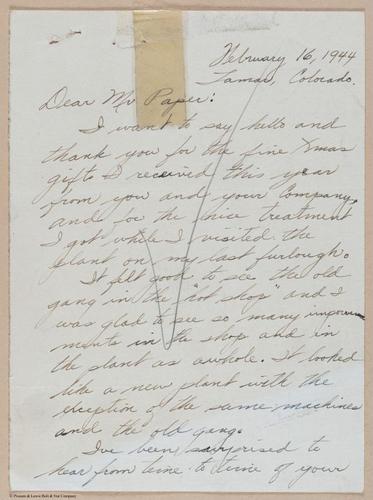 February 16, 1944
Lamar, Colorado.
Dear Mr Paper:
I want to say hello and
thank you for the fine Xmas
gifts I received this year
from you and your Company,
and for the nice treatment
I got while I visited the
plant on my last furlough.
It felt good to see the old
gang in the "hot shop" and I
was glad to see so many improve
ments in the shop and in
the plant as awhole. It looked
like a new plant with the
exception of the same machines
and the old gang.
I've been surprised to
hear from time to time of your
© Possum & Lewis Bolt & Nut Company